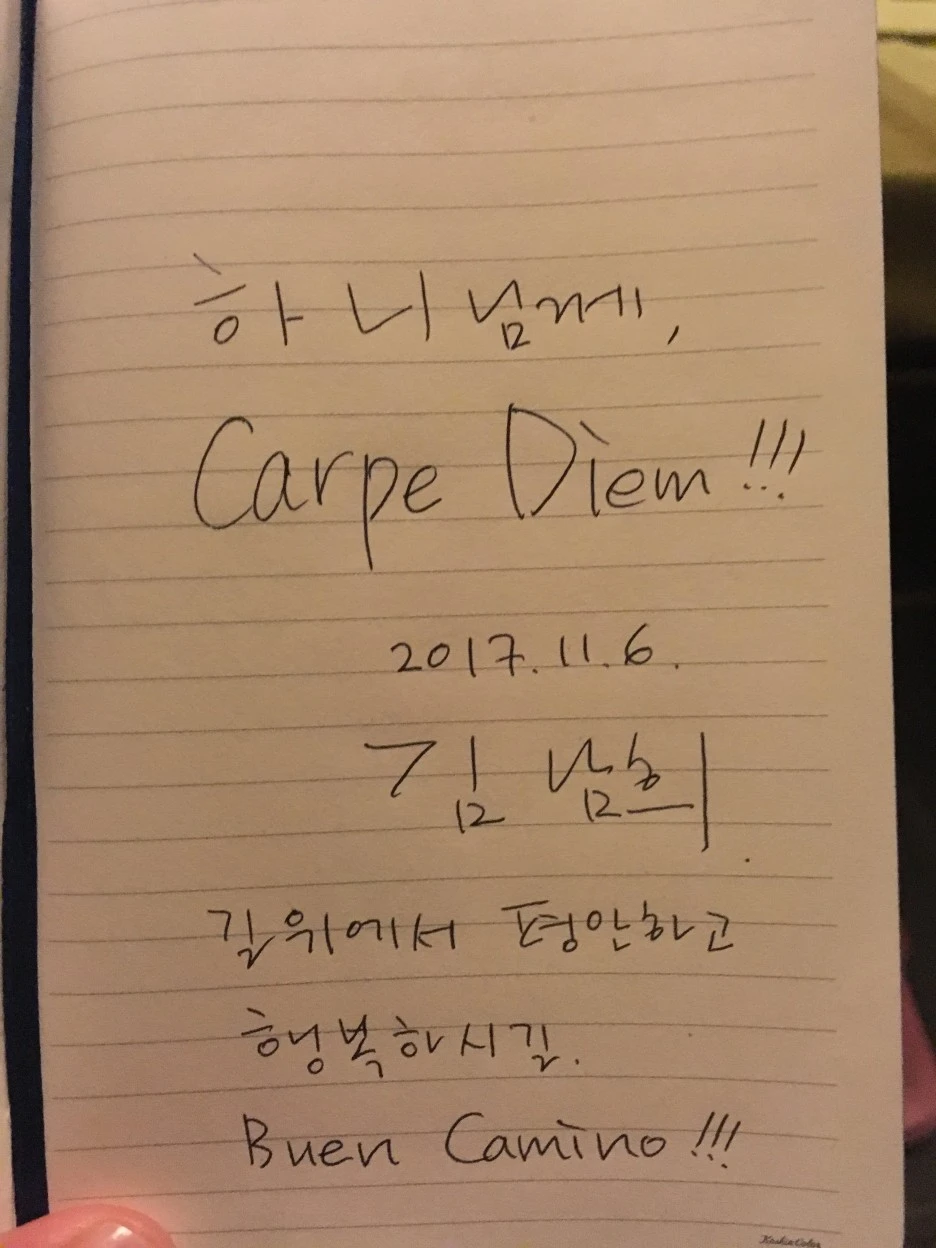 하니님께,
Carpe Diem!!!
2017.11.6.
김남희.
길위에서 평안하고
행복하시길.
Buen Camino!!!